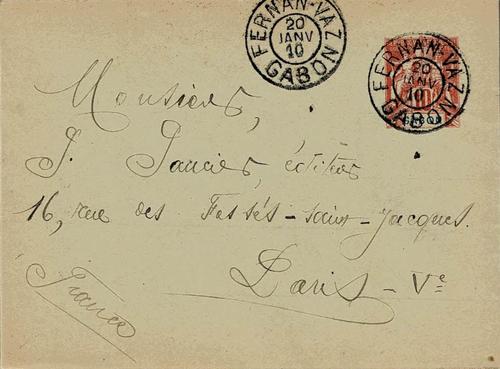 FERNAN-VAZ
20
JANV
10
GABON
FERNAN-VAZ
20
JANV
10
GABON
GABON
Monsieur,
J. Paucier, éditeur
16, rue des Fossés-saint-Jacques.
Paris - Vᵉ
France